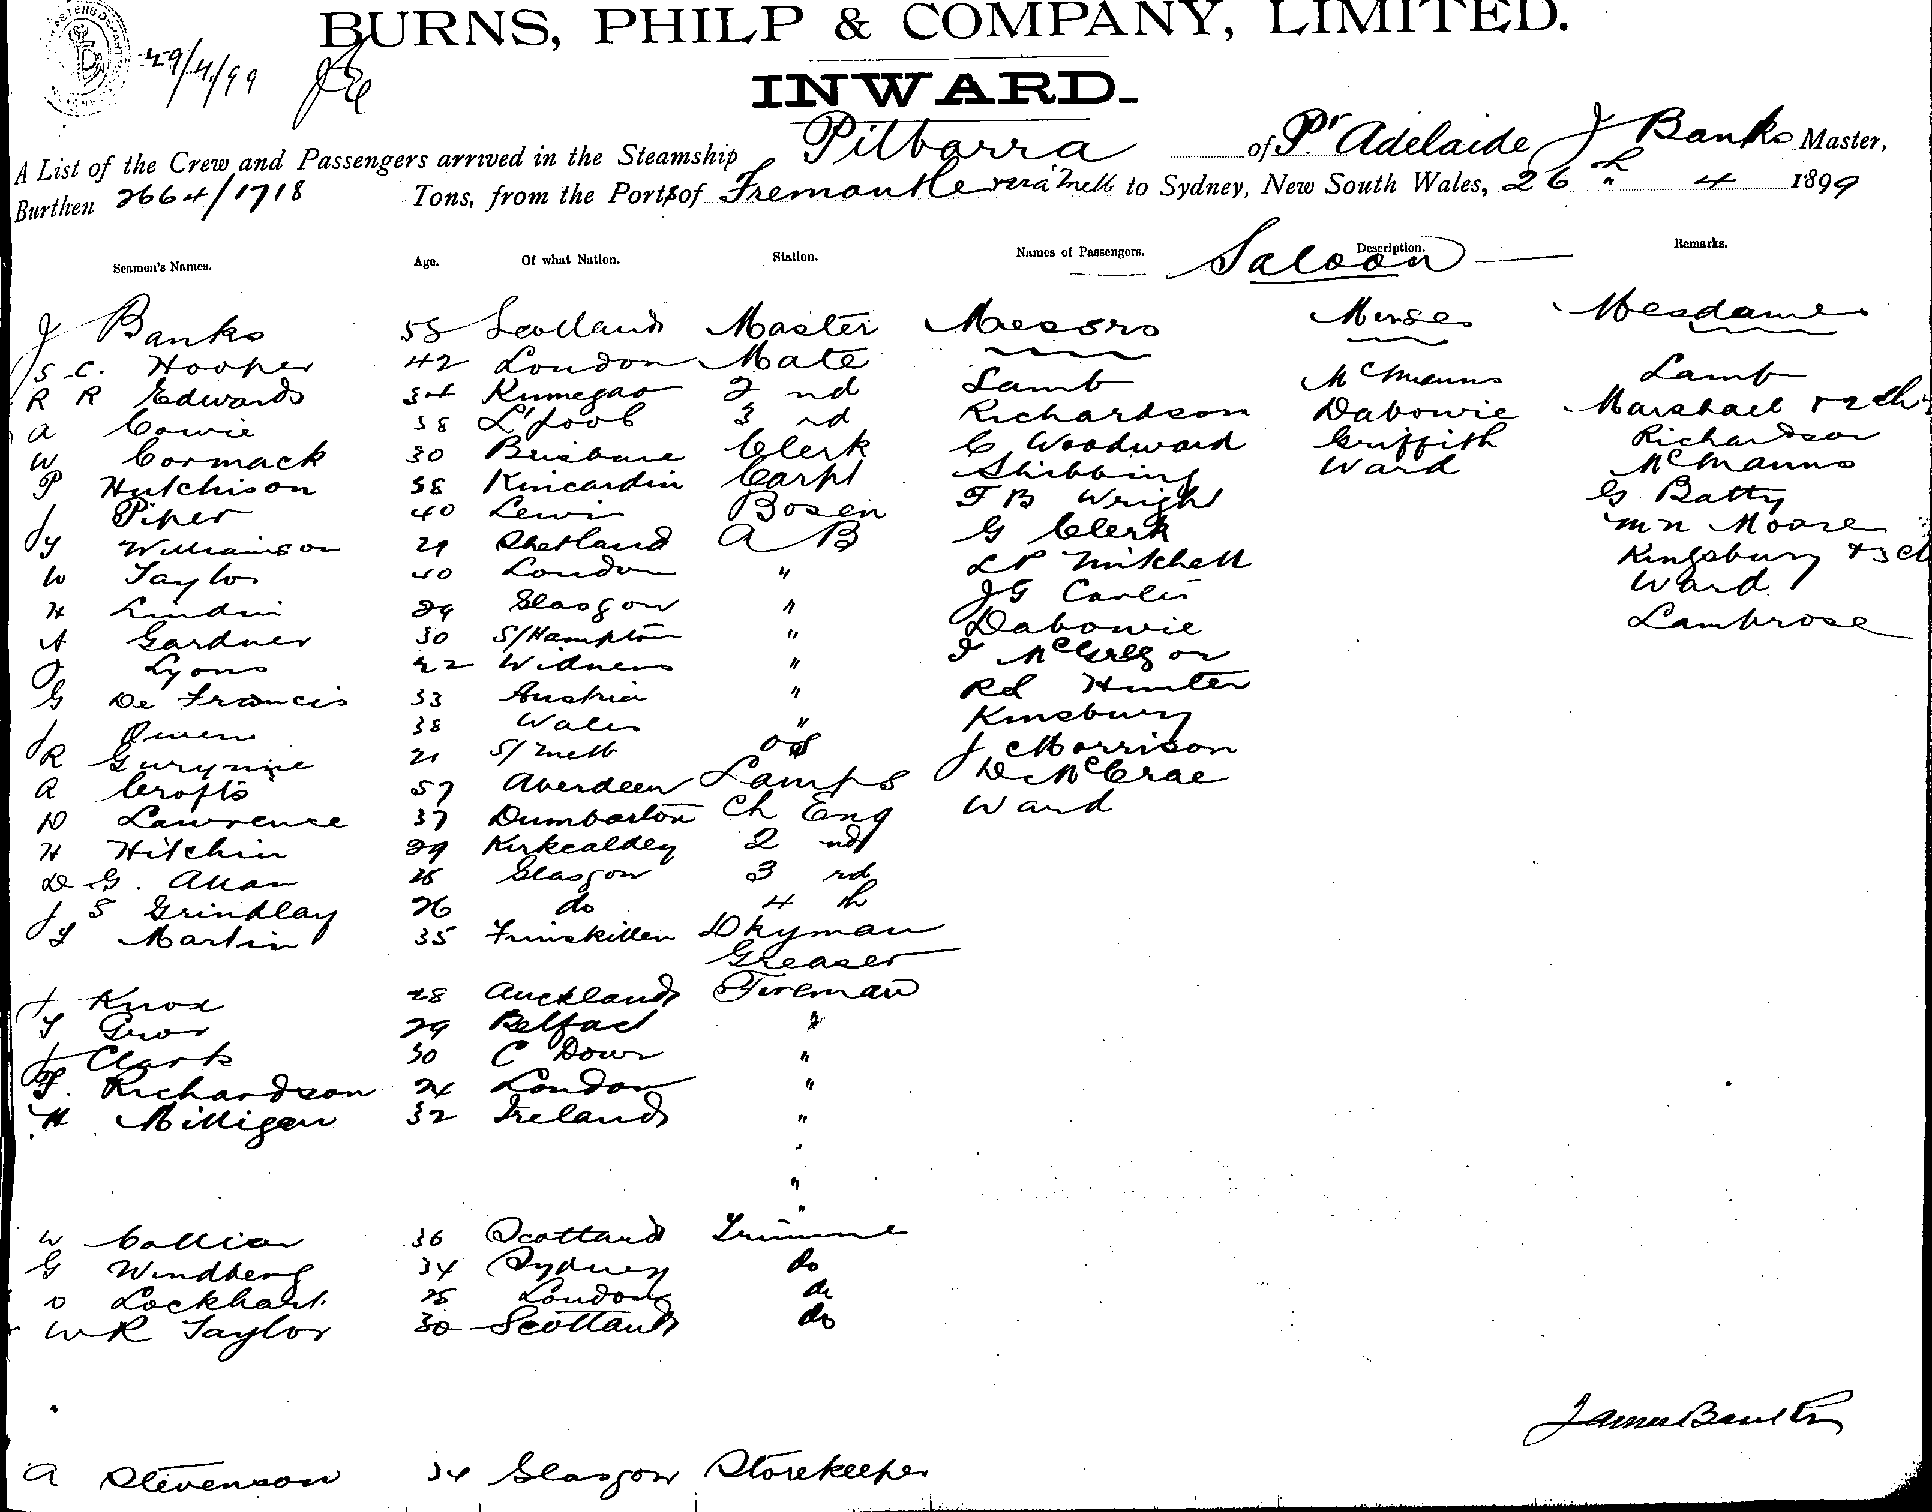 BURNS, PHILP & COMPANY, LIMITED.
29/4/99
INWARD.
A List of the Crew and Passengers arrived in the Steamship Pilbarra of Pt Adelaide J Banks Master,
Burthen 2664/1718 Tons, from the Port of Fremantle via Melb to Sydney, New South Wales, 26th 4 1899
Seamen's Names. Age. Of what Nation. Station. Names of Passengers. Description. Remarks.
Saloon
J Banks 55 Scotland Master Messrs Misses Mesdames
S C. Hooper 42 London Mate Lamb McManns Lamb
R R Edwards 34 2nd Richardson Dabowie Marshall + 2 ch
A Cowie 38 L'pool 3rd C Woodward Griffith Richardson
W Cormack 30 Brisbane Clerk Stribbing Ward McManns
P Hutchison 58 Kincardin Carpt F B Wright G Batty
J Piper 40 Lewis Bosen G Clerk Moore
Y Williamson 29 Shetland A B Mitchell Kingsbury + 3 ch
W Taylor 40 London " J G Ward
H Lindin 29 Glasgow " Dabowie Lambrose
A Gardner 30 S/Hampton " McGregor
J Lyons 22 Widnes " R L Hunter
G De Francis 33 Austria " Kinsbury
J Owen 38 Wales " J Morrison
R Gurynne 21 S/Melb O S D McCrae
A Crofts 57 Aberdeen Lamps Ward
D Lawrence 37 Dumbarton Ch Eng
H Hitchin 29 Kirkcaldey 2nd
D G. Allan 28 Glasgow 3rd
J S Grindlay 26 do 4th
T Martin 35 Dkyman
Greaser
J Knox 28 Auckland Fireman
29 Belfast "
J Clark 30 C Down "
F. Richardson 24 London "
H Milligen 32 Ireland "
"
"
"
W 36 Scotland Trimme
G Windberg 34 Sydney do
D Lockhart 28 London do
W R Taylor 30 Scotland do
James Banks
A Stevenson 34 Glasgow Storekeeper